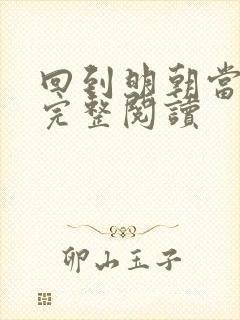 回到明朝當
完整閱讀
卯山玉子